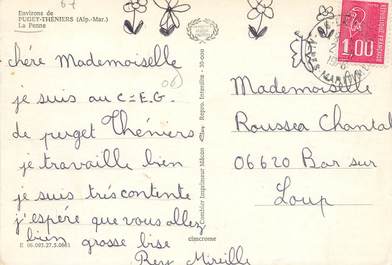 67
Environs de
PUGET-THÉNIERS (Alp.-Mar.)
La Penne
chère Mademoiselle
je suis au C.E.G.
de puget Théniers
je travaille bien
je suis très contente
j'espère que vous allez
bien grosse bise
Rey Mireille
E (6.093.27.5.066)
Combier Imprimeur Mâcon
Repro. Interdite - 35-000
cimcrome
REPUBLIQUE FRANÇAISE
1,00
ALPES MARITIMES
Mademoiselle
Roussea Chantal
06620 Bar sur
Loup